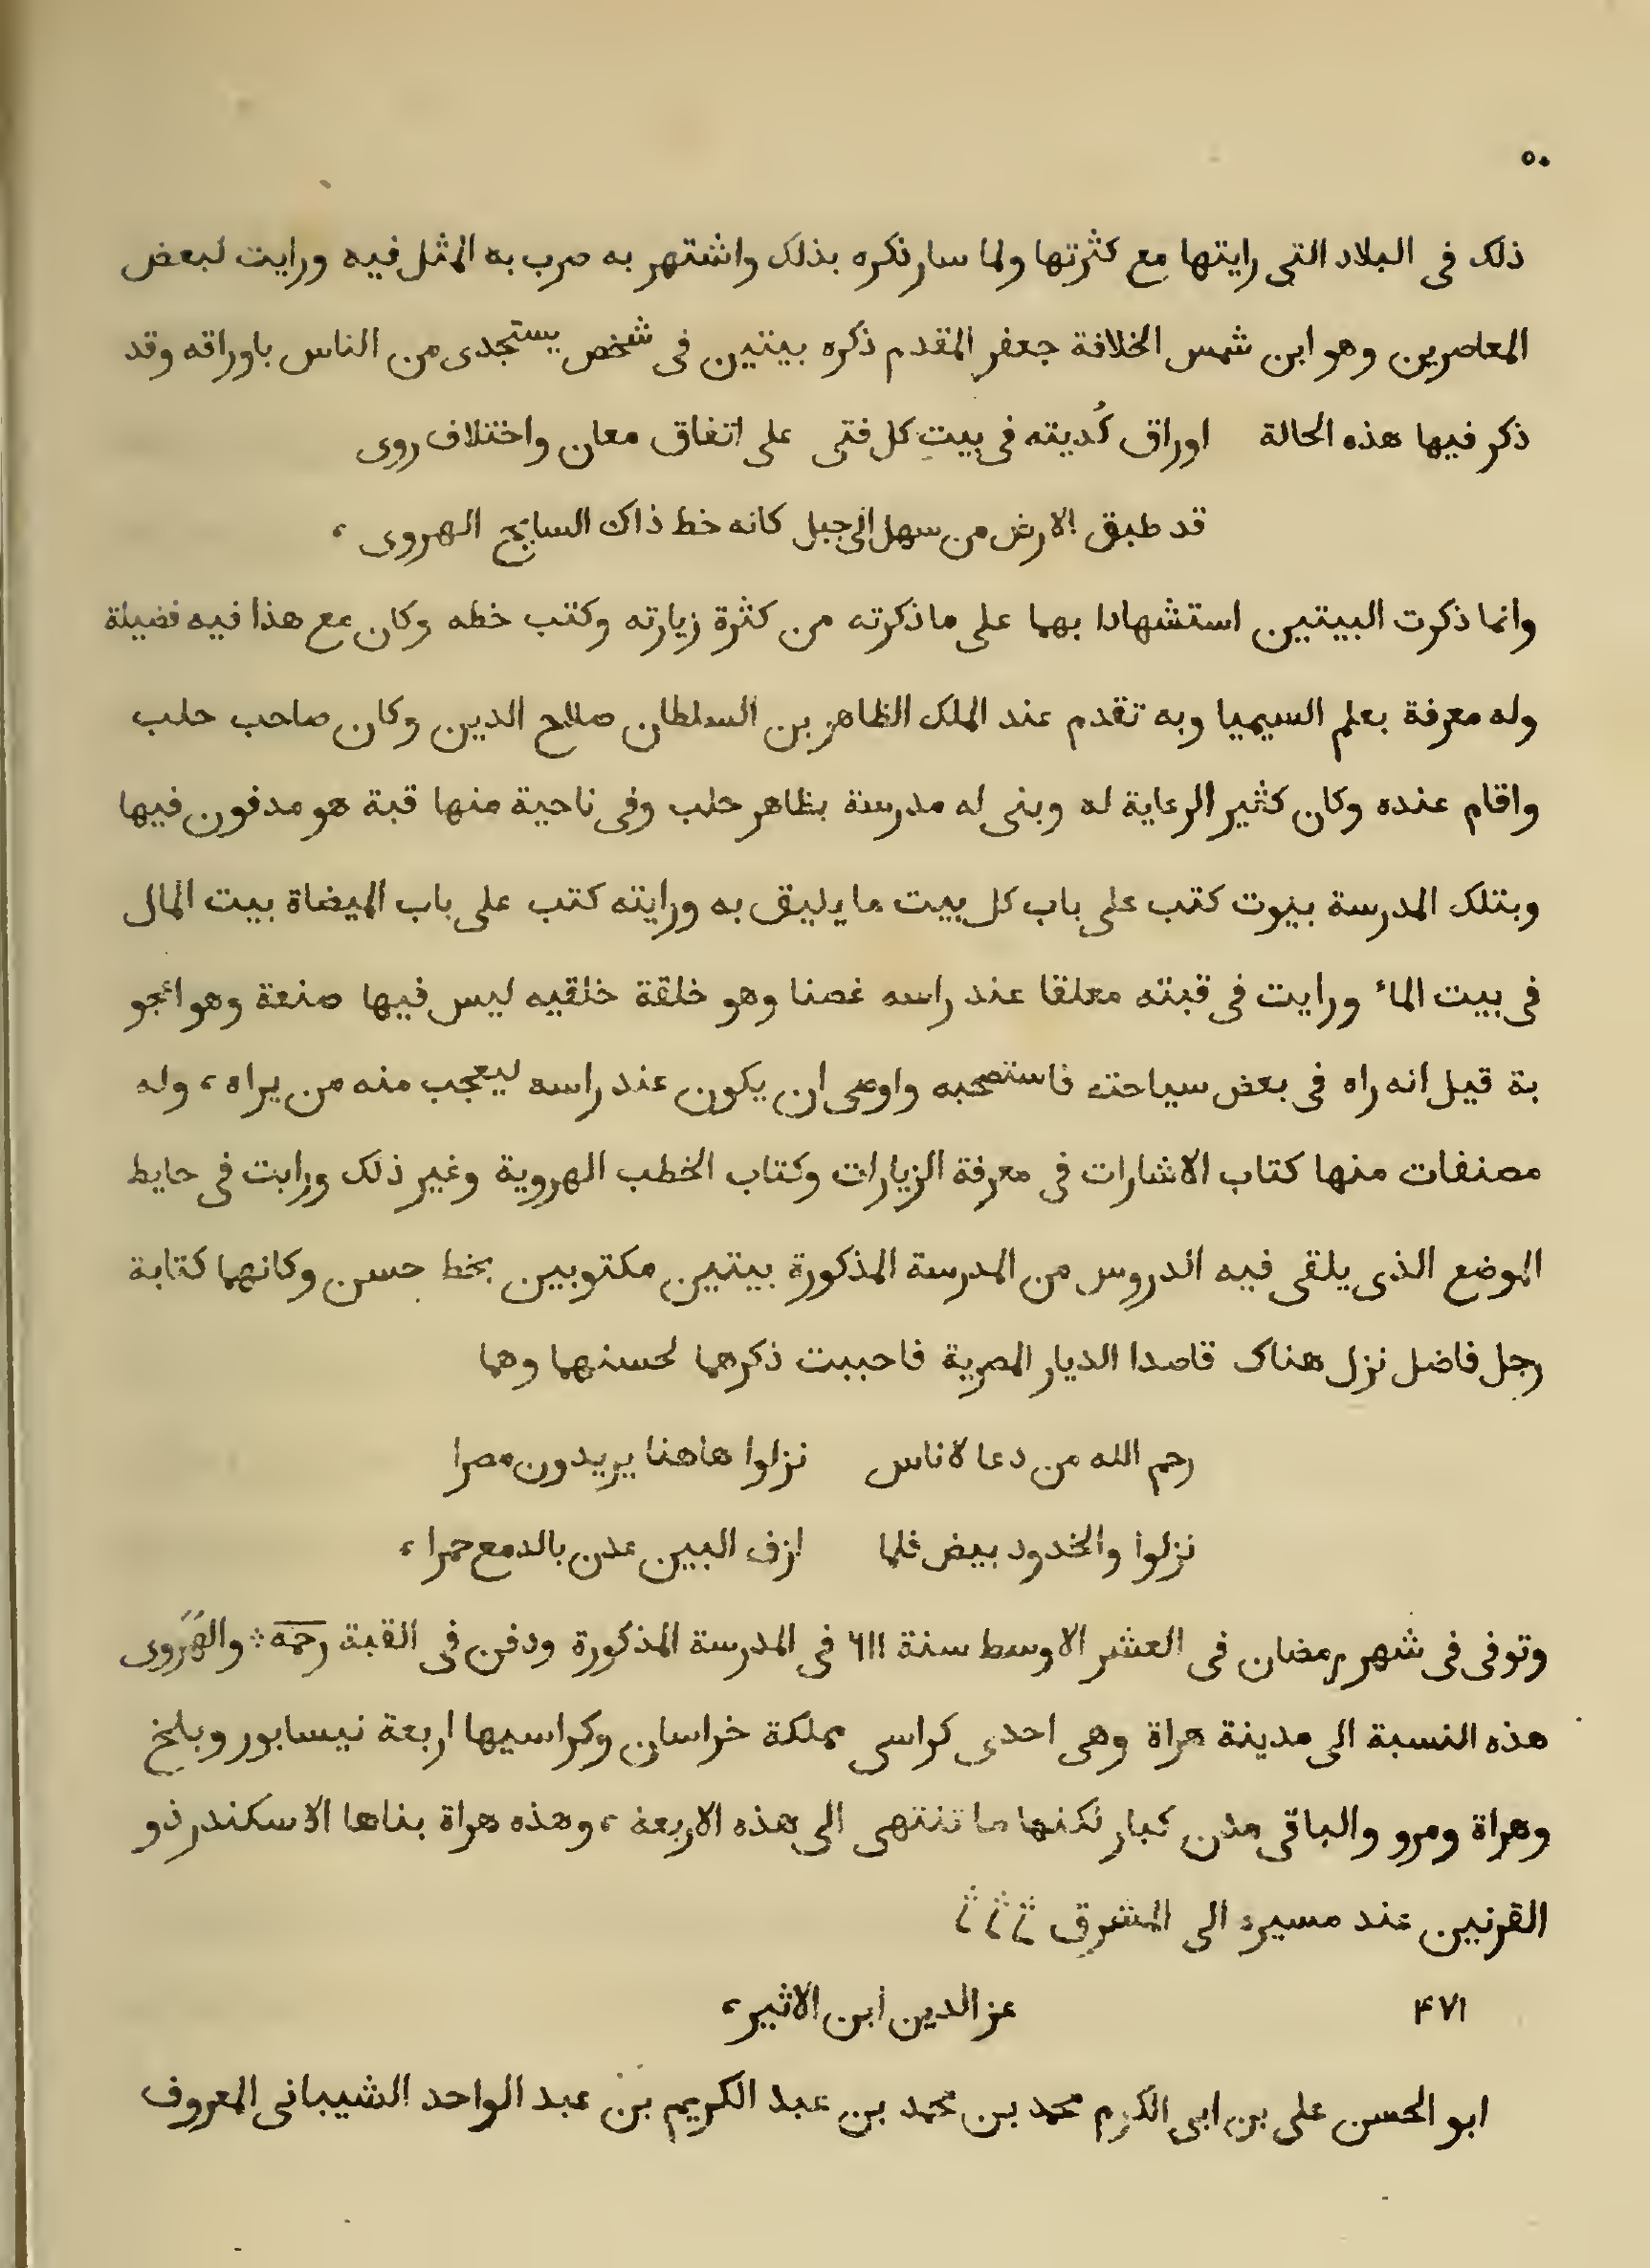 ٥٠
ذلك فى البلاد التى رايتها مع كثرتها ولما سار ذكره بذلك واشتهر به ضرب به المثل فيه ورايت لبعض
المعاصرين وهو ابن شمس الخلافة جعفر المقدم ذكره بيتين فى شخص يستجدى من الناس باوراقه وقد
ذكر فيها هذه الحالة اوراق كُديته فى بيت كل فتى على اتفاق معان واختلاف روى
قد طبق الارض من سهل الى جبل كانه خط ذاك السايح الهروى ،
وانما ذكرت البيتين استشهادا بهما على ما ذكرته من كثرة زيارته وكتب خطه وكان مع هذا فيه فضيلة
وله معرفة بعلم السيميا وبه تقدم عند الملك الظاهر بن السلطان صلاح الدين وكان صاحب حلب
واقام عنده وكان كثير الرعاية له وبنى له مدرسة بظاهر حلب وفى ناحية منها قبة هو مدفون فيها
وبتلك المدرسة بيوت كتب على باب كل بيت ما يليق به ورايته كتب على باب الميضاة بيت المال
فى بيت الماء ورايت فى قبته معلقا عند راسه غصنا وهو خلقة خلقيه ليس فيها صنعة وهو اعجو
بة قيل انه راه فى بعض سياحته فاستصحبه واوصى ان يكون عند راسه ليعجب منه من يراه ، وله
مصنفات منها كتاب الاشارات فى معرفة الزيارات وكتاب الخطب الهروية وغير ذلك ورايت فى حايط
الموضع الذى يلقى فيه الدروس من المدرسة المذكورة بيتين مكتوبين بخط حسن وكانهما كتابة
رجل فاضل نزل هناك قاصدا الديار المصرية فاحببت ذكرهما لحسنهما وهما
رحم الله من دعا لاناس نزلوا هاهنا يريدون مصرا
نزلوا والخدود بيض فلما ازف البين عدن بالدمع حمرا ،
وتوفى فى شهر رمضان فى العشر الاوسط سنة ٦١١ فى المدرسة المذكورة ودفن فى القبة رحمه ؞ والهَرَوى
هذه النسبة الى مدينة هراة وهى احدى كراسى مملكة خراسان وكراسيها اربعة نيسابور وبلخ
وهراة ومرو والباقى مدن كبار لكنها ما تنتهى الى هذه الاربعة ، وهذه هراة بناها الاسكندر ذو
القرنين عند مسيره الى المشرق
٤٧١ عز الدين ابن الاثير ،
ابو الحسن على بن ابى الكرم محمد بن محمد بن عبد الكريم بن عبد الواحد الشيبانى المعروف